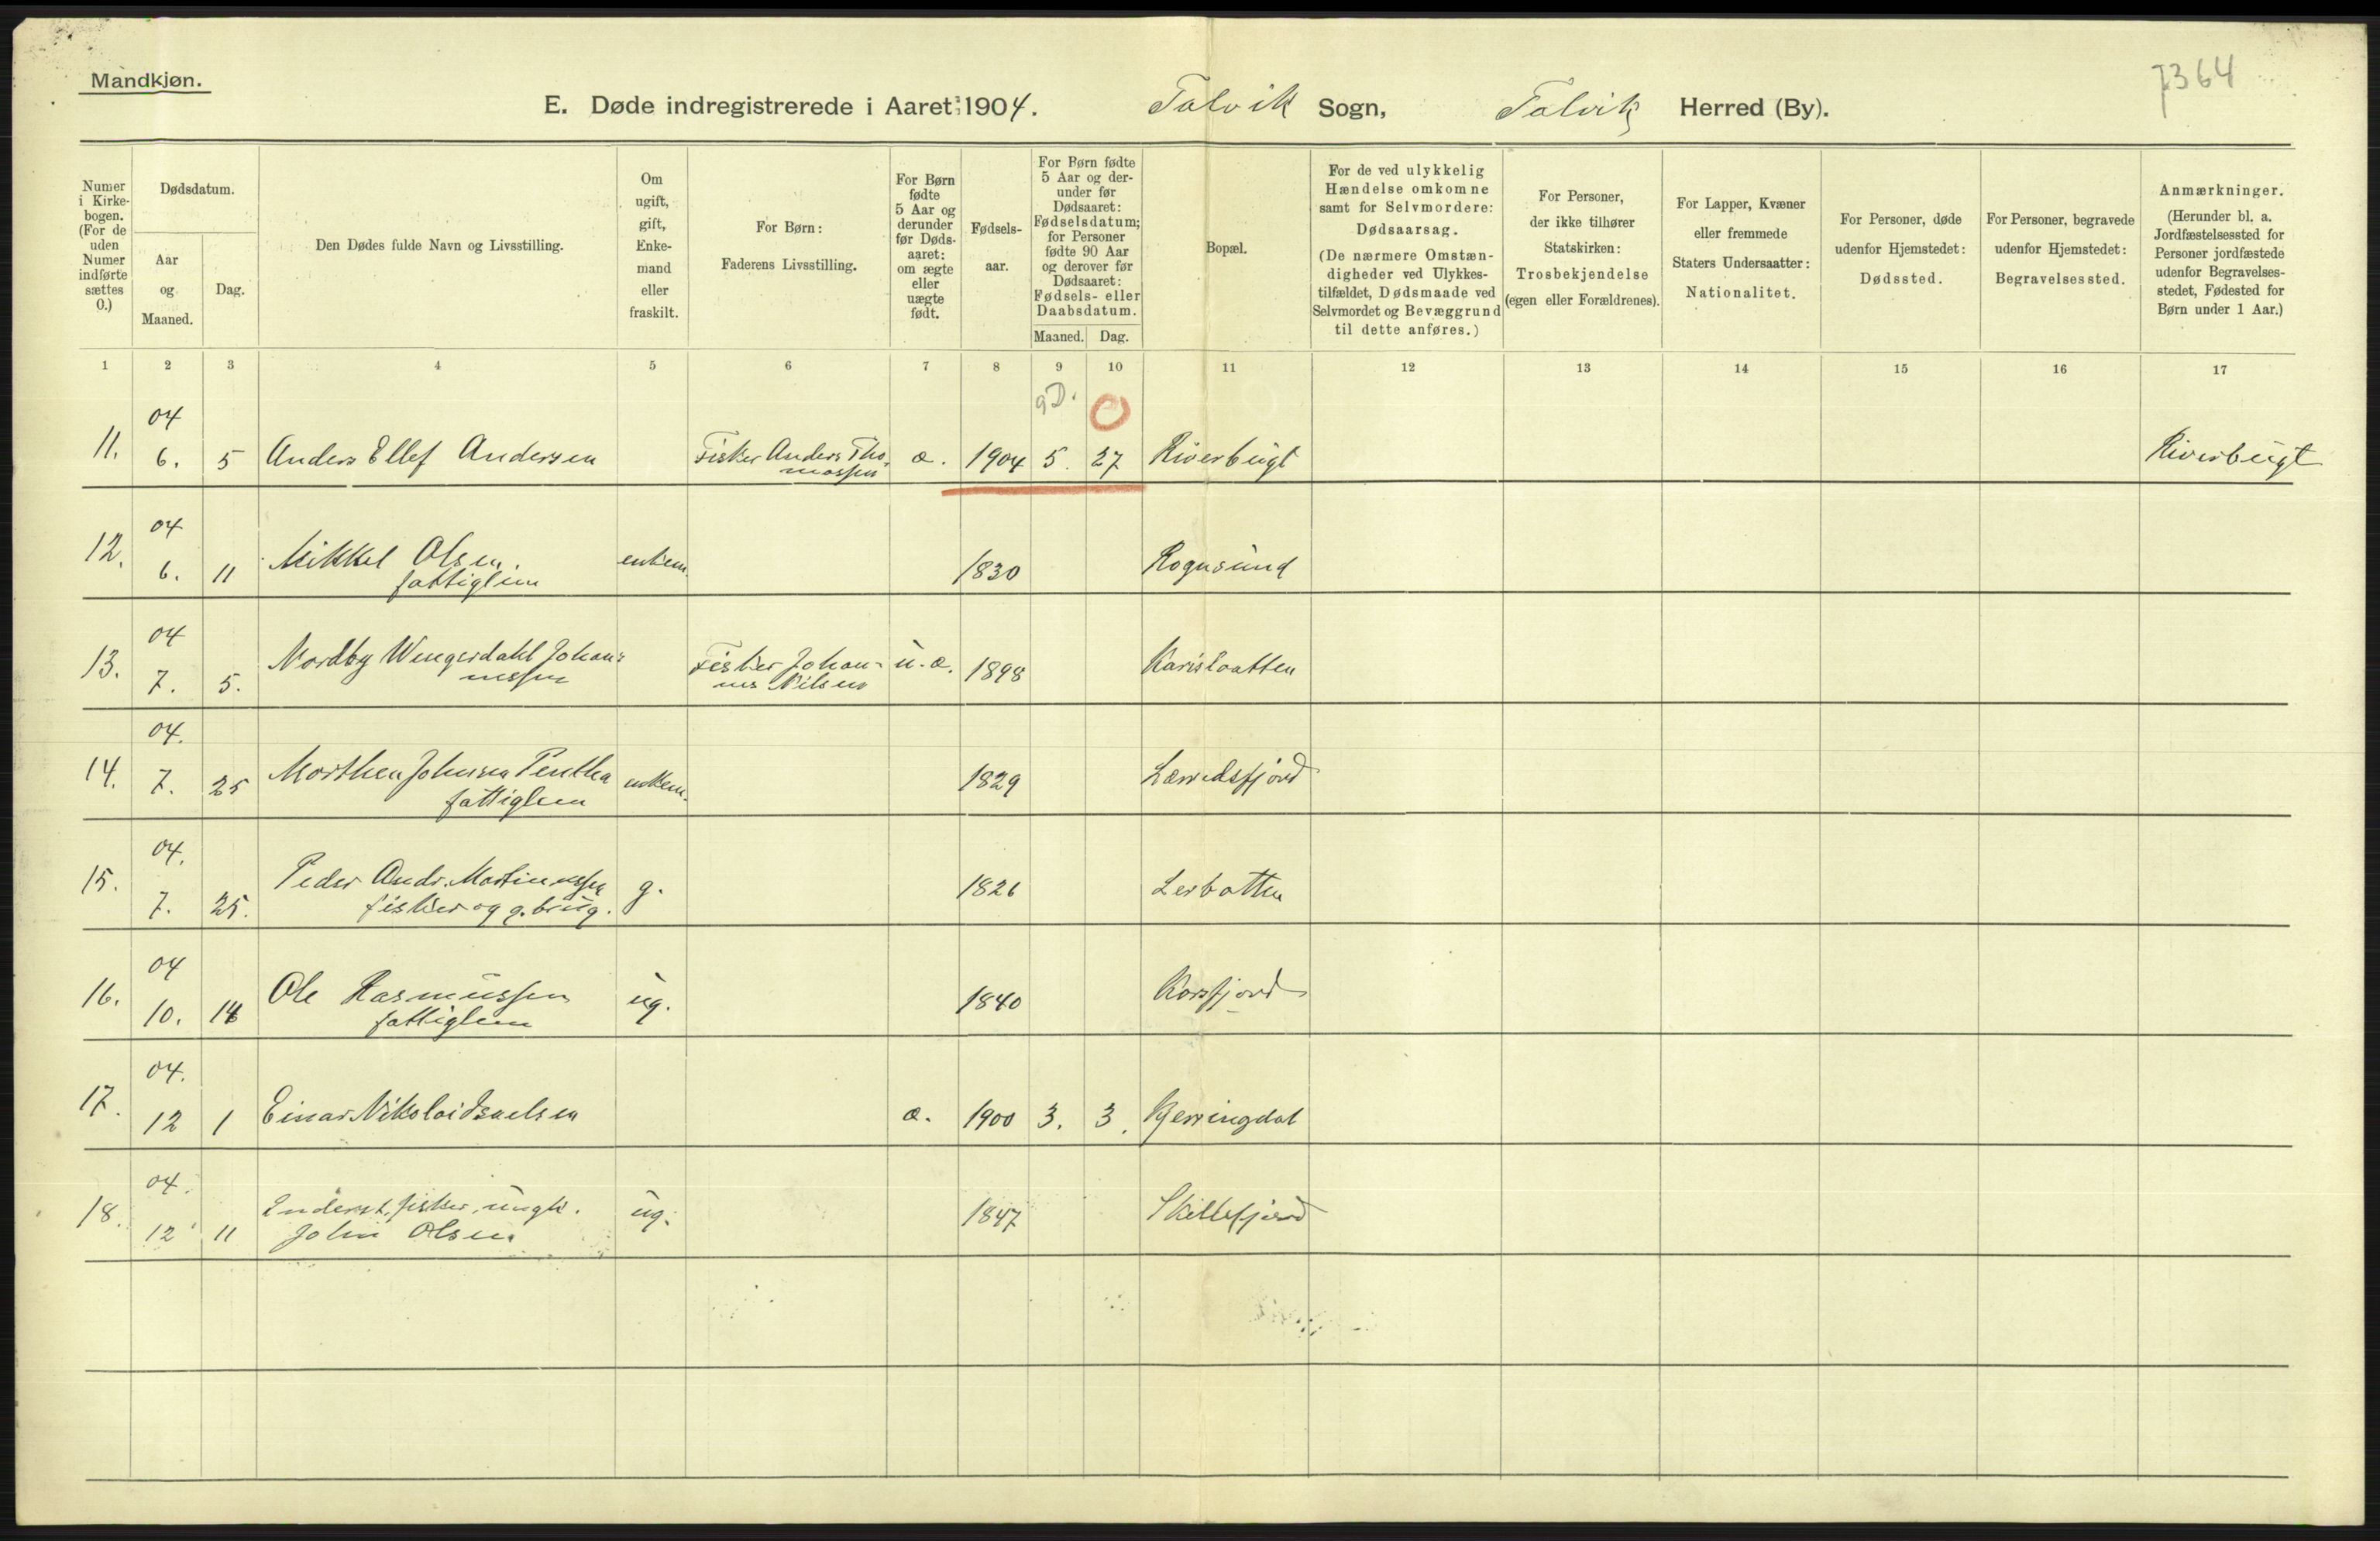 Mandkjøn.
7364
E. Døde indregistrerede i Aaret 1904. Talvik Sogn, Talvik Herred (By).
Numer i Kirkebogen. (For de uden Numer indførte sættes 0.)
Dødsdatum.
Aar og Maaned.
Dag.
Den Dødes fulde Navn og Livsstilling.
Om ugift, gift, Enkemand eller fraskilt.
For Børn:
Faderens Livsstilling.
For Børn fødte 5 Aar og derunder før Dødsaaret: om ægte eller uægte født.
Fødselsaar.
For Børn fødte 5 Aar og derunder før Dødsaaret: Fødselsdatum; for Personer fødte 90 Aar og derover før Dødsaaret: Fødsels- eller Daabsdatum.
Maaned. Dag.
Bopæl.
For de ved ulykkelig Hændelse omkomne samt for Selvmordere: Dødsaarsag.
(De nærmere Omstændigheder ved Ulykkestilfældet, Dødsmaade ved Selvmordet og Bevæggrund til dette anføres.)
For Personer, der ikke tilhører Statskirken: Trosbekjendelse (egen eller Forældrenes).
For Lapper, Kvæner eller fremmede Staters Undersaatter: Nationalitet.
For Personer, døde udenfor Hjemstedet: Dødssted.
For Personer, begravede udenfor Hjemstedet: Begravelsessted.
Anmærkninger.
(Herunder bl. a. Jordfæstelsessted for Personer jordfæstede udenfor Begravelsesstedet, Fødested for Børn under 1 Aar.)
1 2 3 4 5 6 7 8 9 10 11 12 13 14 15 16 17
9D. 0
04
11. 6. 5 Anders Ellef Andersen Fisker Anders Tho- æ. 1904 5. 27 Riverbugt Riverbugt
massen
04
12. 6. 11 Mikkel Olsen. enkem. 1830 Rognsund
fattiglem
04
13. 7. 5. Nordby Wengerdahl Johan- Fisker Johan- u.æ. 1898 Karisloatten
nessen nes Nilsen
04.
14. 7. 25 Morthen Johnsen Pentha enkem. 1829 Lærredsfjord
fattiglem
04.
15. 7. 25. Peder Andr. Martinussen g. 1826 Lerbotten
fisker og g.brug.
04
16. 10. 14 Ole Rasmussen ug. 1840 Korsfjord
fattiglem
04.
17. 12 1 Einar Nikolai Isaelsen æ. 1900 3. 3. Kjerringdal
04.
18. 12 11 Inderst, fisker, ungk. ug. 1847 Skillefjord
John Olsen